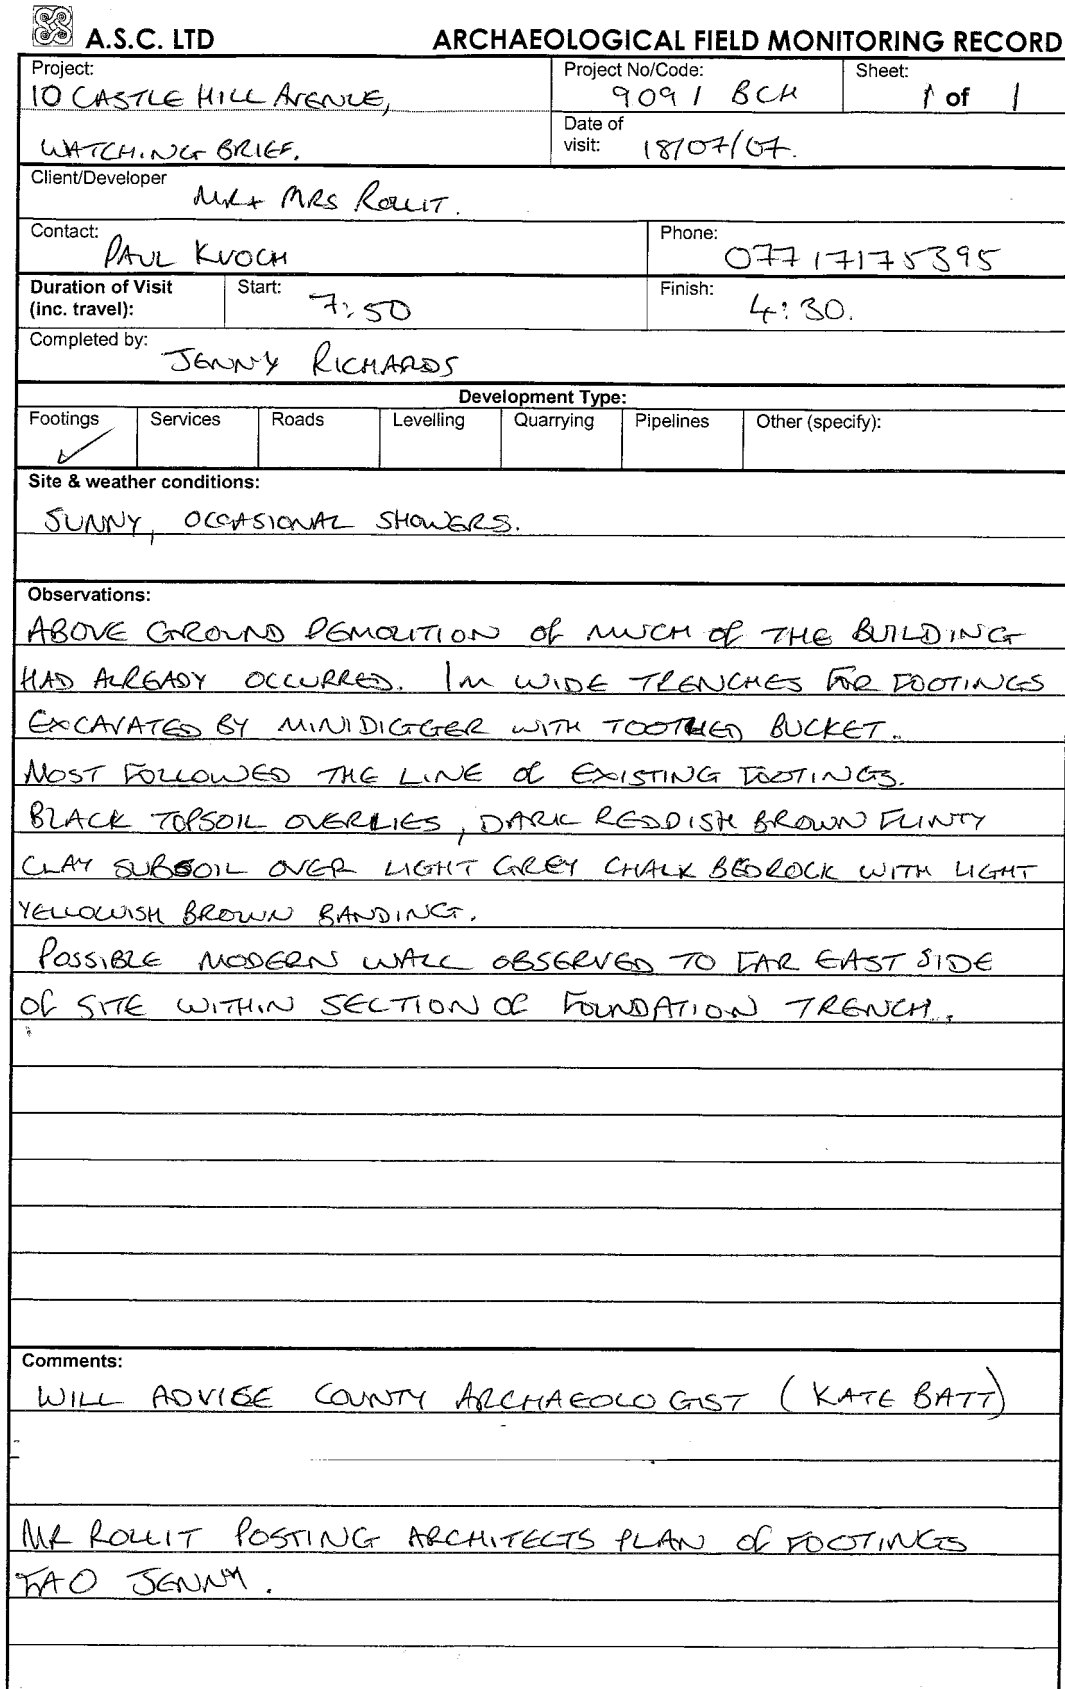 A.S.C. LTD ARCHAEOLOGICAL FIELD MONITORING RECORD
Project: Project No/Code: Sheet:
10 CASTLE HILL AVENUE, 9091 BCH 1 of 1
Date of
WATCHING BRIEF. visit: 18/07/07.
Client/Developer
MR + MRS ROLLIT.
Contact: Phone:
PAUL 07717175395
Duration of Visit Start: Finish:
(inc. travel): 7:50 4:30.
Completed by:
JENNY RICHARDS
Development Type:
Footings Services Roads Levelling Quarrying Pipelines Other (specify):
✓
Site & weather conditions:
SUNNY, OCCASIONAL SHOWERS.
Observations:
ABOVE GROUND DEMOLITION OF MUCH OF THE BUILDING
HAD ALREADY OCCURRED. 1M WIDE TRENCHES FOR FOOTINGS
EXCAVATED BY MINIDIGGER WITH TOOTHED BUCKET.
MOST FOLLOWED THE LINE OF EXISTING FOOTINGS.
BLACK TOPSOIL OVERLIES, DARK REDDISH BROWN FLINTY
CLAY SUBSOIL OVER LIGHT GREY CHALK BEDROCK WITH LIGHT
YELLOWISH BROWN BANDING.
POSSIBLE MODERN WALL OBSERVED TO FAR EAST SIDE
OF SITE WITHIN SECTION OF FOUNDATION TRENCH.
Comments:
WILL ADVISE COUNTY ARCHAEOLOGIST (KATE BATT)
MR ROLLIT POSTING ARCHITECTS PLAN OF FOOTINGS
FAO JENNY.